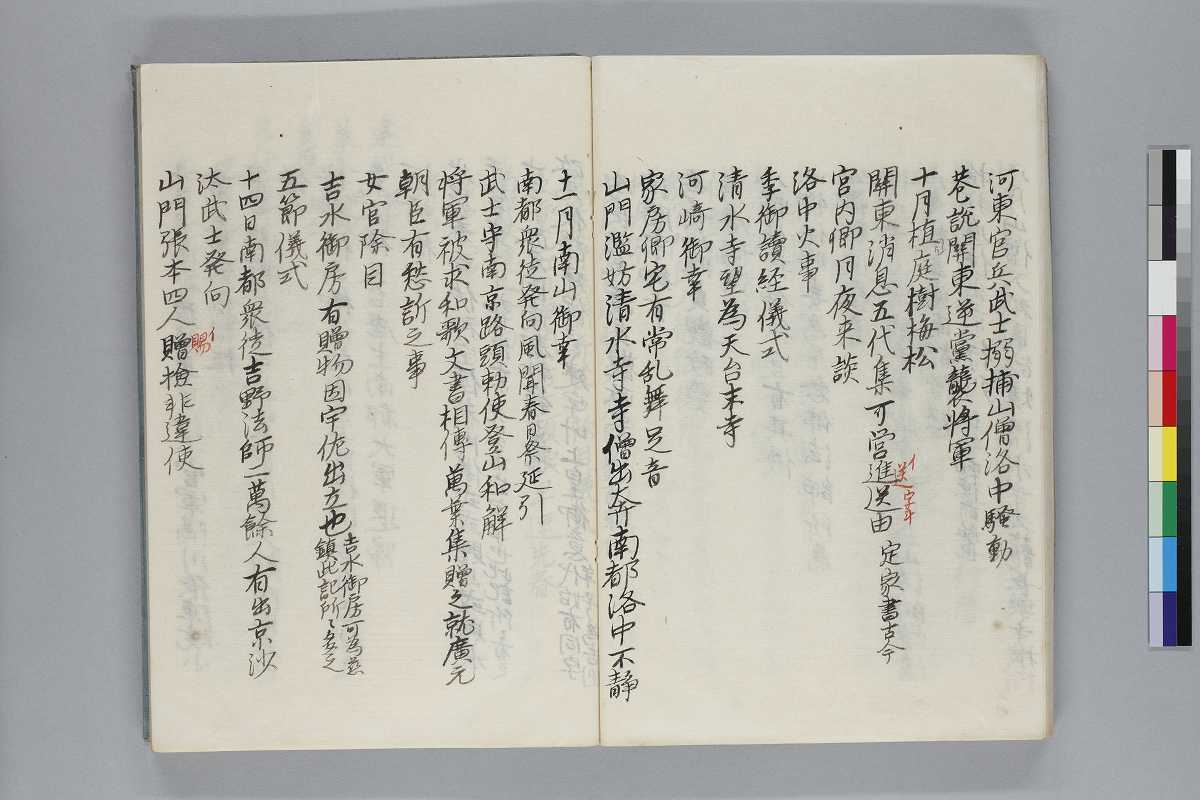 河東官兵武士搦捕山僧洛中騒動
巷説関東逆黨襲将軍
十月植庭樹梅松
關東消息五代集可営進送由 定家書古今
イ
送
宮内卿月夜来談
洛中火事
季御讀経儀式
清水寺望為天台末寺
河﨑御幸
家房卿宅有常乱舞足音
山門濫妨清水寺寺僧出奔南都洛中不静
十一月南山御幸
南都衆徒発向風聞春日祭延引
武士守南京路頭勅使登山和解
将軍被求和歌文書相傳萬葉集贈之就廣元
朝臣有愁訴之事
女官除目
吉水御房有贈物因字佐出立也
吉水御房可為慈
鎮此記所〻多之
五節儀式
十四日南都衆徒吉野法師二萬餘人有出京沙
汰武士発向
山門張本四人贈檢非違使
イ
賜